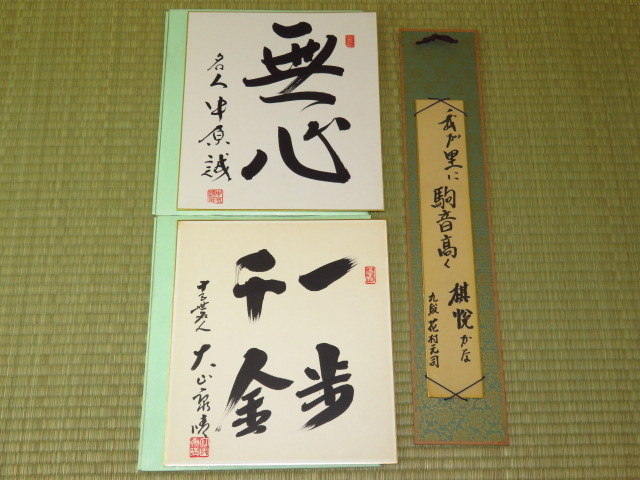 無心
名人 中原誠
一歩
千金
十五世名人
大山康晴
我が里に
駒音高く
棋悦かな
九段 花村元司